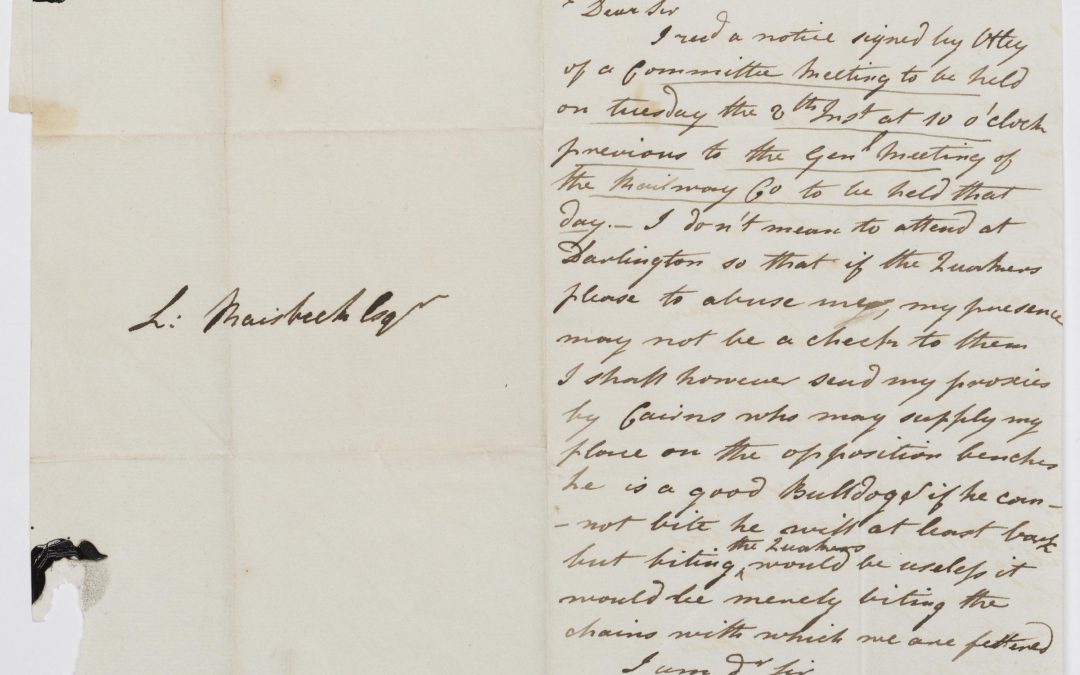 L: Maisbeck Esqr
Dear Sir
I recd a notice signed by Otley
of a Committee Meeting to be held
on tuesday the 2th Inst at 10 o'clock
previous to the Genl Meeting of
the Railway Co to be held that
day.— I don't mean to attend at
Darlington so that if the Quakers
please to abuse me, my presence
may not be a check to them
I shall however send my proxies
by Cairns who may supply my
place on the opposition benches
he is a good Bulldog & if he can-
-not bite he will at least bark
but biting the Quakers would be useless it
would be merely biting the
chains with which we are fettered
I am dr Sir